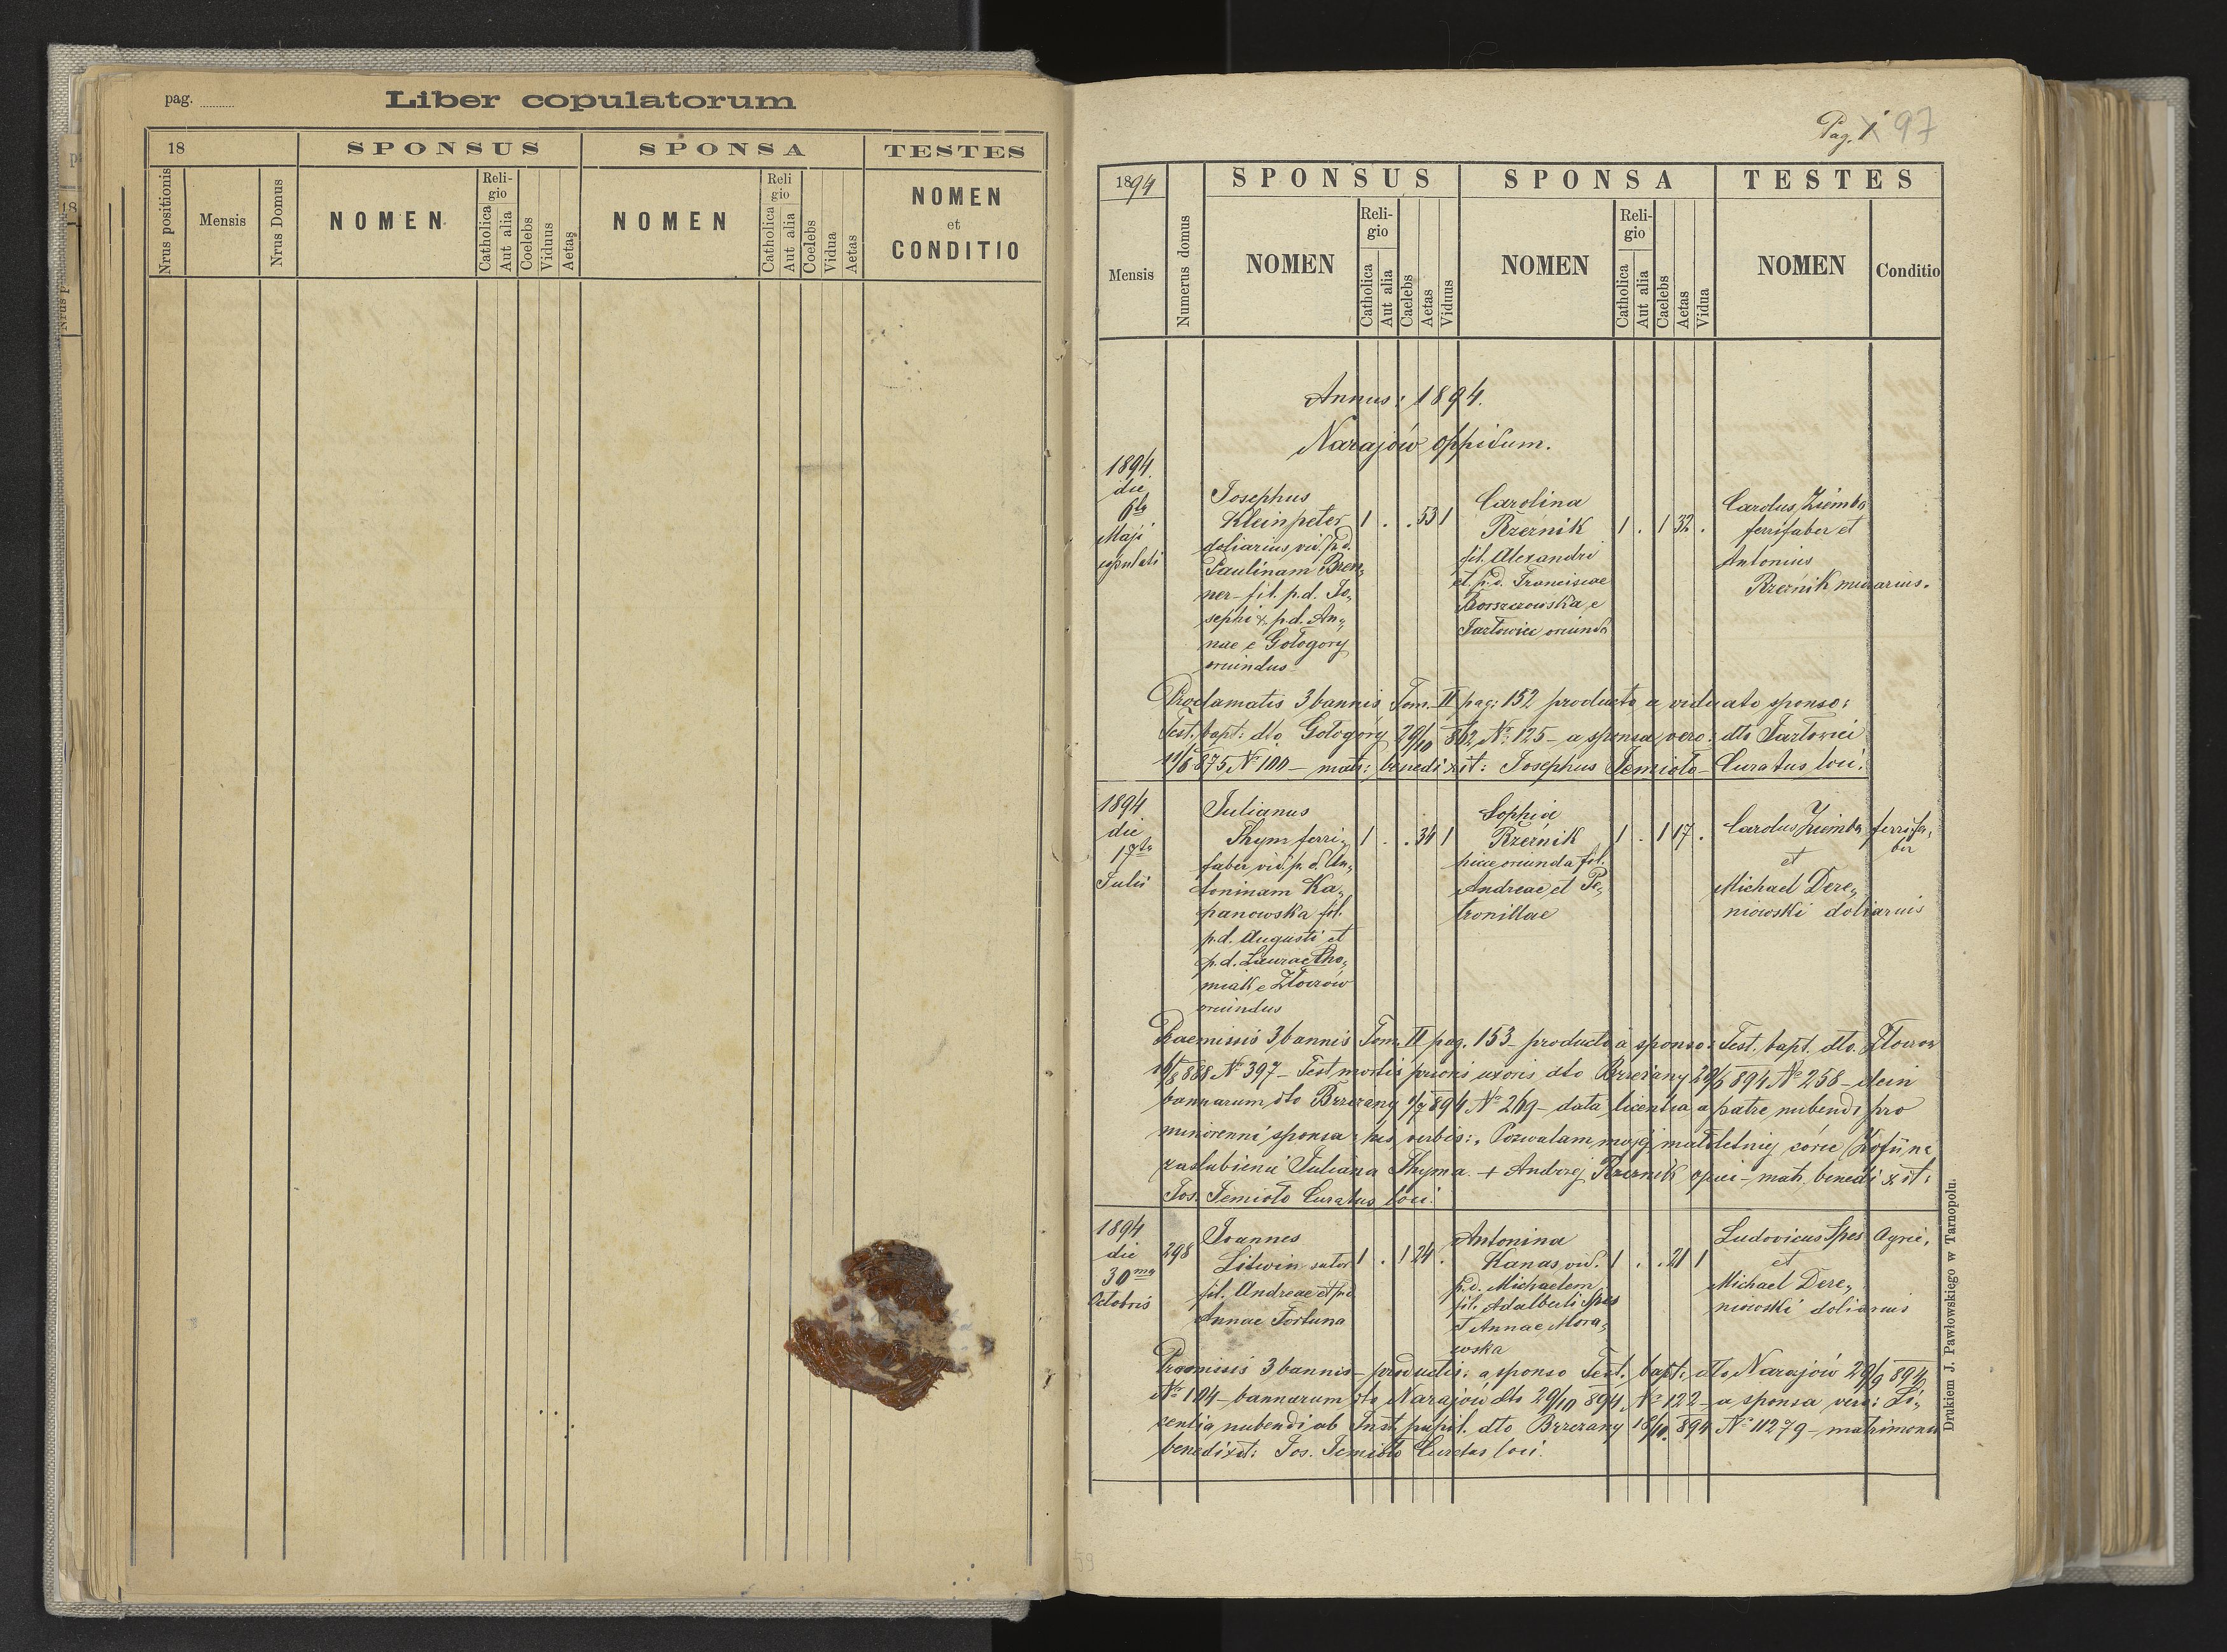 pag.
Liber copulatorum
18
SPONSUS
SPONSA
TESTES
Nrus positionis
Mensis
Nrus Domus
NOMEN
Religio
Catholica
Aut alia
Coelebs
Viduus
Aetas
NOMEN
Religio
Catholica
Aut alia
Coelebs
Vidua
Aetas
NOMEN
et
CONDITIO
Pag. 1 97
1894
SPONSUS
SPONSA
TESTES
Mensis
Numerus domus
NOMEN
Reli-
gio
Catholica
Aut alia
Caelebs
Aetas
Viduus
NOMEN
Reli-
gio
Catholica
Aut alia
Caelebs
Aetas
Vidua
NOMEN
Conditio
Annus: 1894.
Narajów oppidum.
1894
die
6ta
Maji
copulati
Josephus
Kleinpeter 1 . . 53 1
doliarius, vid. p.d.
Paulinam Bren,
ner - fil. p.d. Jo,
sephi & p.d. An,
nae e Gołogóry
oriundus
Carolina
Rzeźnik 1 . 1 32 .
fil. Alexandri
et p.d. Franciscae
Borszczowska, e
Jazłowiec oriunda
Carolus Ziemba
ferrifaber et
Antonius
Rzeźnik murarius.
Proclamatis 3 bannis Tom. II pag: 152 producta a viduato sponso:
Test. bapt: dto Gołogóry 29/10 862 No: 125 - a sponsa vero: dto Jazłowiec
11/6 875 No 100 - matr: benedixit: Josephus Jemioło - Curatus loci.
1894
die
17ta
Julii
Julianus
Thym ferri, 1 . . 34 1
faber vid. p.d. An,
toninam Ka,
panowska fil.
p.d. Augusti et
p.d. Laurae Cho,
miak e Złoczów
oriundus
Sophia
Rzeźnik 1 . 1 17 .
hice oriunda fil.
Andreae et Pe,
tronillae
Carolus Ziemba ferrifa,
ber
et
Michael Dere,
niowski doliarius
Praemissis 3 bannis Tom. II pag. 153 - producto a sponso: Test. bapt. dto. Złoczów
888 No 397 - Test mortis prioris uxoris dto Brzeżany 29/6 894 No 258 - dein
bannarum dto Brzeżany 894 No 269 - data licentia a patre nubendi pro
minorenni sponsa his verbis: „Pozwalam mojej małoletniej córce Zofii na
zaślubienie Juliana Thyma. + Andrzej Rzeźnik ojciec - matr. benedixit:
Jos. Jemioło Curatus loci.
1894
die
30ma
Octobris
298
Joannes
Litwin sutor 1 . 1 24 .
fil. Andreae et pd
Annae Fortuna
Antonina
Kanas vid. 1 . . 21 1
p.d. Michaelem
fil. Adalberti Spes
et Annae Mora,
wska
Ludovicus Spes Agric,
et
Michael Dere,
niowski doliarius
Praemissis 3 bannis - productis: a sponso Test. bapt: dto Narajów 29/9 894
No 104 - bannarum dto Narajów dto 29/10 894 No 122 - a sponsa vero: Li,
centia nubendi ab Inst. pupil. dto Brzeżany 18/10. 894 No 11279 - matrimonio
benedixit: Jos. Jemioło Curatus loci.
Drukiem J. Pawłowskiego w Tarnopolu.
59